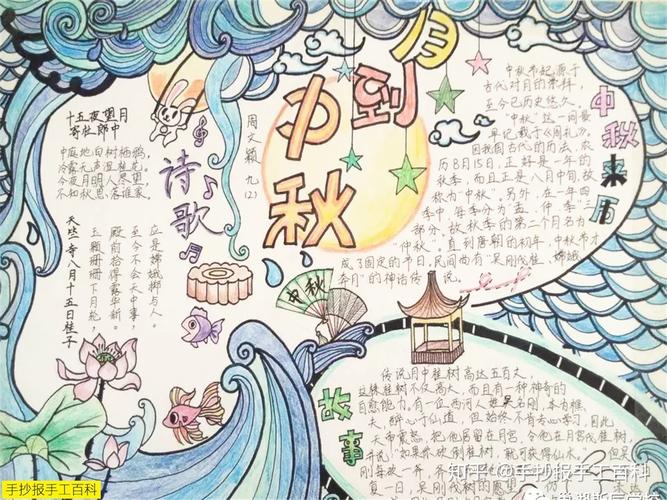 月到中秋
周文颖 九(2)
十五夜望月
寄杜郎中
中庭地白树栖鸦,
冷露无声湿桂花。
今夜月明人尽望,
不知秋思落谁家
诗歌
天竺寺八月十五日桂子
玉颗珊珊下月轮,
殿前拾得露华新。
至今不会天中事,
应是嫦娥掷与人。
中秋
中秋来历
中秋节起源于
古代对月的崇拜,
至今已历史悠久。
"中秋"这一词最
早记载于《周礼》,
因我国古代的历法,农
历8月15日,正好是一年的
秋季,而且正是八月中间,故
称为"中秋"。另外,在一年四
季中,每季分为"孟、仲、季"三
部分,故秋季的第二个月名为
"仲秋"。直到唐朝的初年,中秋节才
成了固定的节日,民间尚有"吴刚伐桂,嫦娥
奔月"的神话传说。
故事
传说月中桂树高达五百丈,
这株桂树不仅高大,而且有一种神奇的
自愈能力,有一位西河人姓吴名刚,本为樵
夫,醉心于仙道,但始终不肯专心学习,因此
天帝震怒,把他居留在月宫,令他在月宫伐桂树,
并说:"如果你砍倒桂树,就可获得仙术。"但吴
刚每
复一日,吴刚伐树的愿望
手抄报手工百科
知乎 @手抄报手工百科